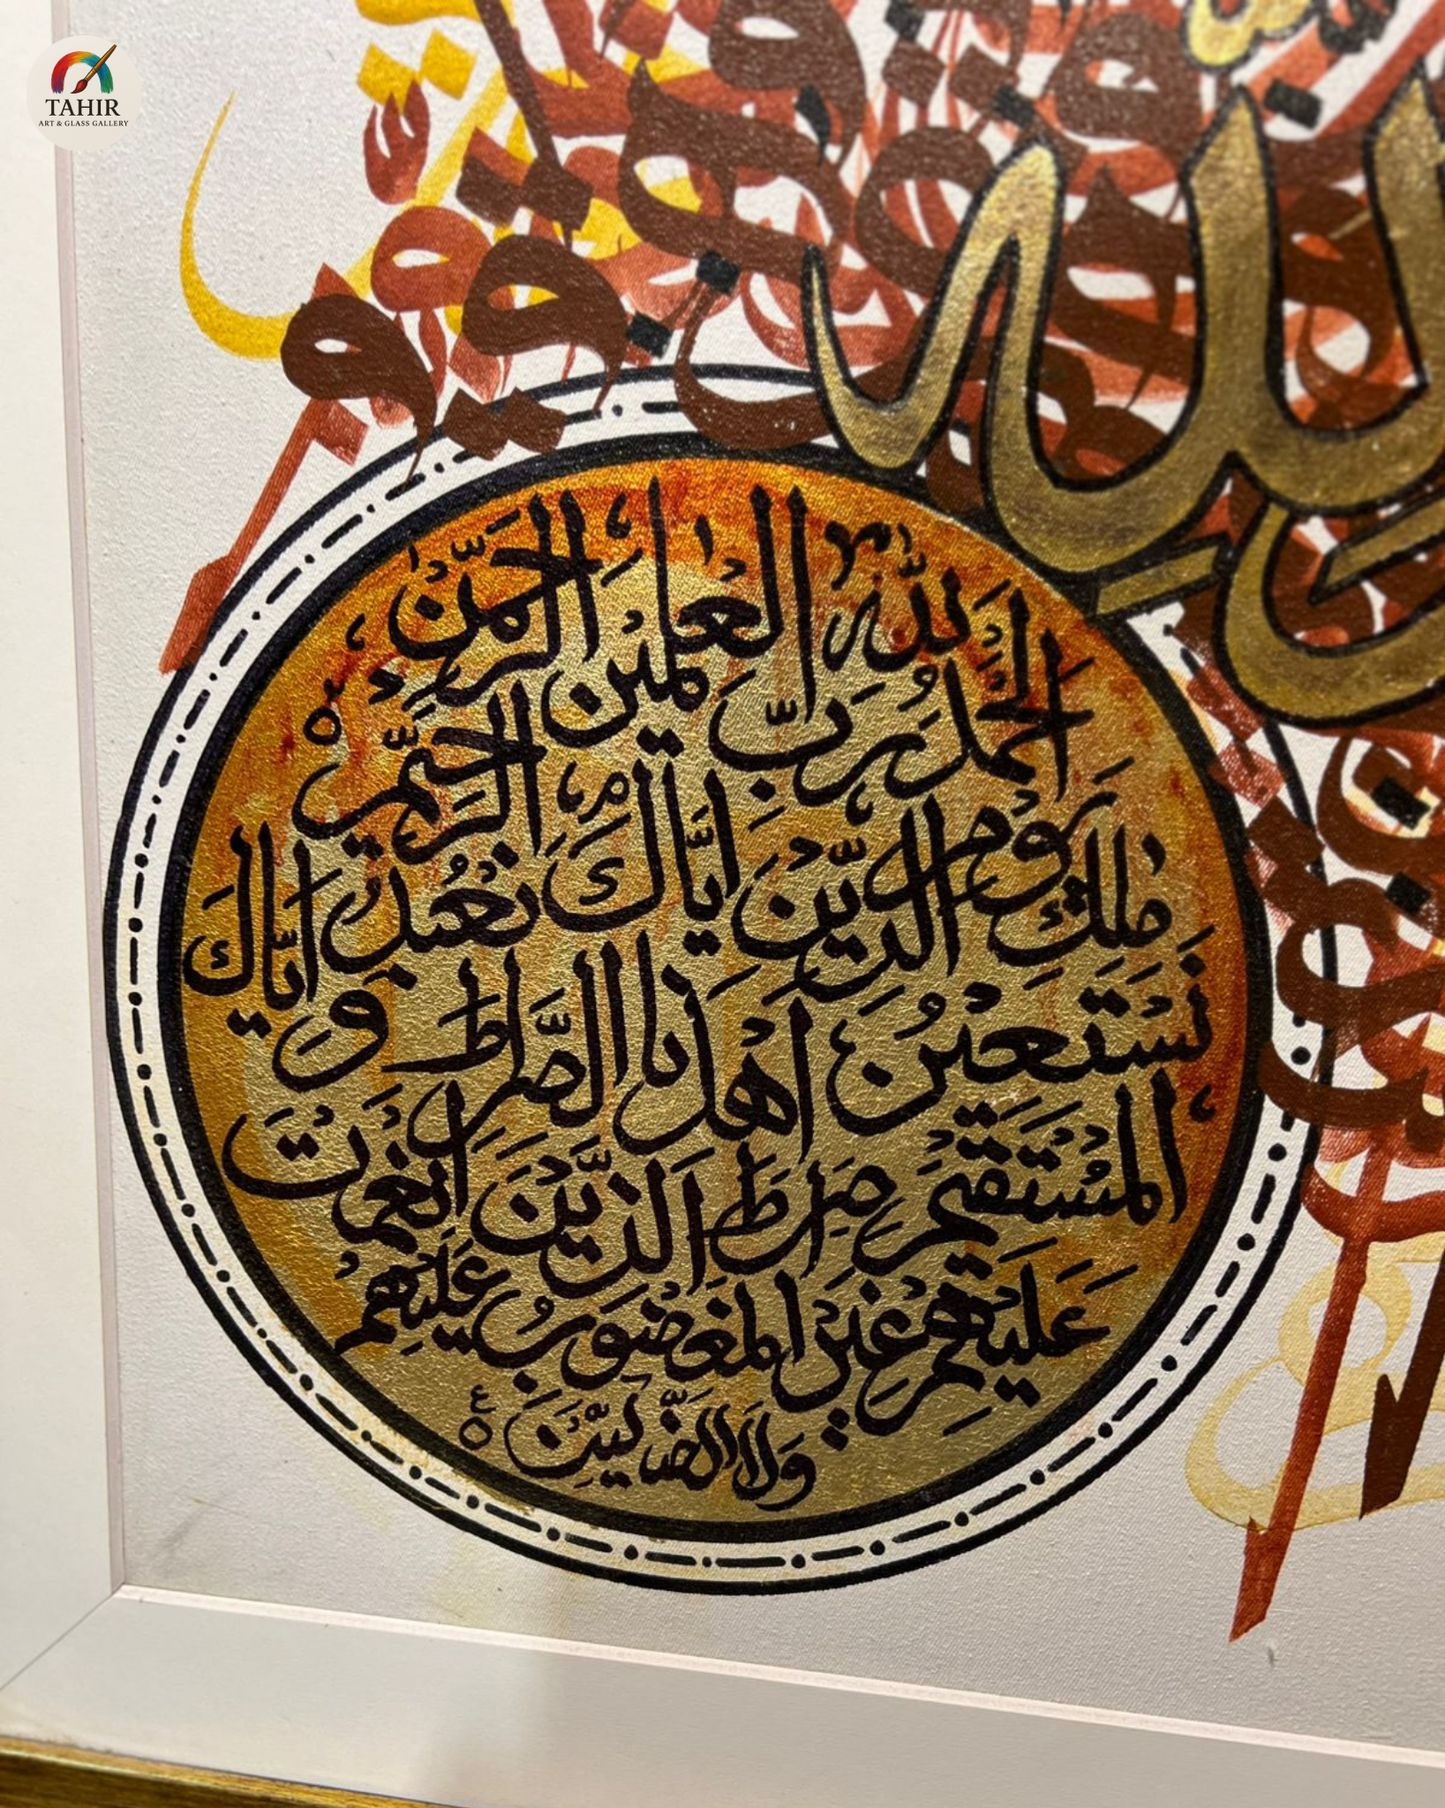 TAHIR
ART & GLASS GALLERY
الله
الحمد لله رب العلمين الرحمن
الرحيم
ملك يوم الدين اياك نعبد و اياك
نستعين اهدنا الصراط
المستقيم صراط الذين انعمت
عليهم غير المغضوب عليهم
ولا الضالين